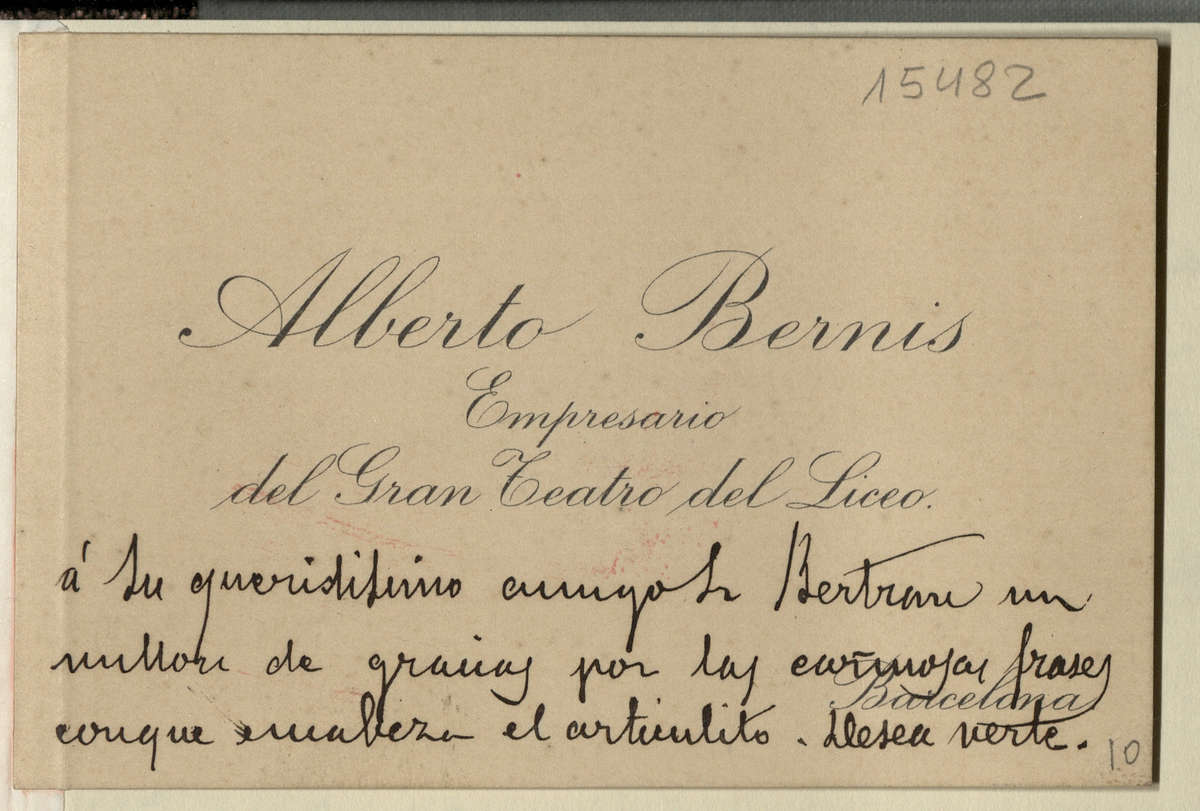 15482
Alberto Bernis
Empresario
del Gran Teatro del Liceo.
á su queridisimo amigo Sr Bertran un
millon de gracias por las cariñosas frases
Barcelona
conque encabeza el articulito. Desea verte.
10